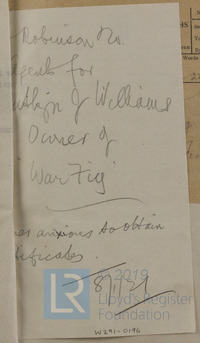 Robinson
Agents for
J Williams
Owner of
"War Fig"
anxious to obtain
tificates.
8/1/21
© 2019
LR
Lloyd's Register
Foundation
W291-0196
Words